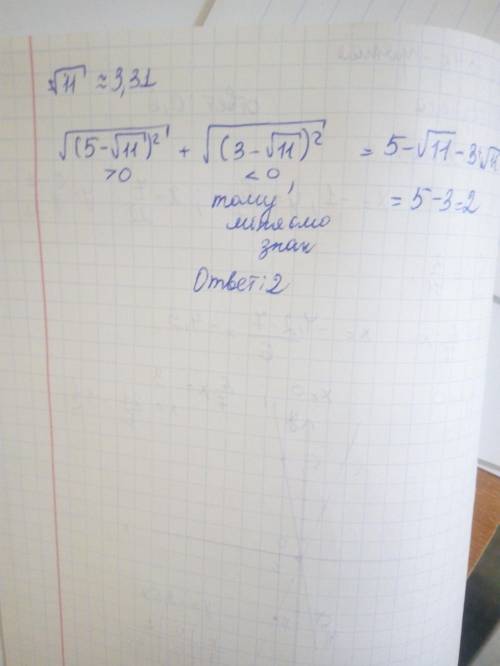 √11 ≈ 3,31
√(5-√11)² + √(3-√11)² = 5-√11-3+√11
>0 <0 = 5-3=2
тому,
міняємо
знак
Ответ: 2